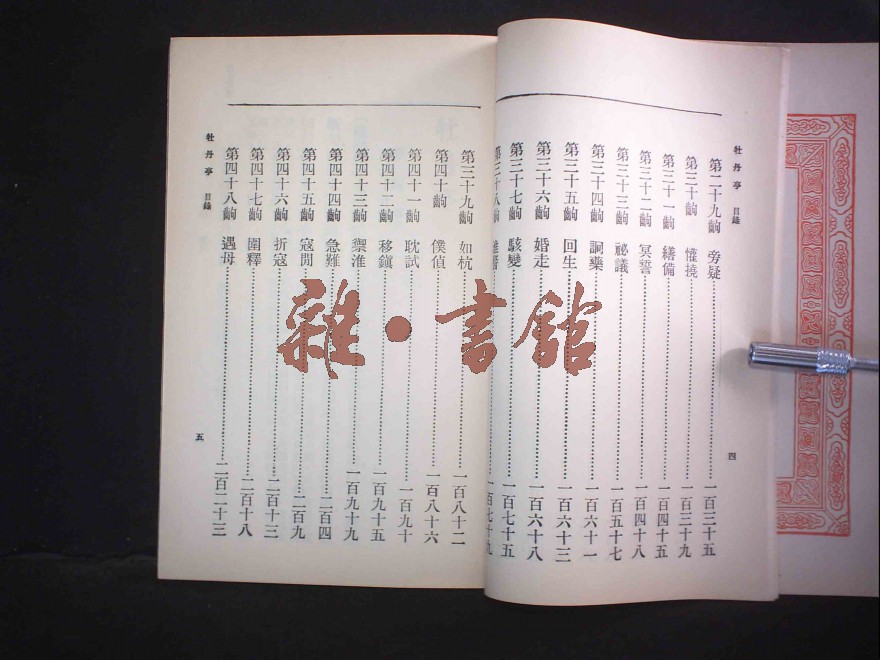 牡丹亭 目錄
第二十九齣 旁疑……一百三十五
第三十齣 懽撓……一百三十九
第三十一齣 繕備……一百四十五
第三十二齣 冥誓……一百四十八
第三十三齣 祕議……一百五十七
第三十四齣 詗藥……一百六十一
第三十五齣 回生……一百六十三
第三十六齣 婚走……一百六十八
第三十七齣 駭變……一百七十五
第三十八齣 淮警……一百七十九
四
第三十九齣 如杭……一百八十二
第四十齣 僕偵……一百八十六
第四十一齣 耽試……一百九十
第四十二齣 移鎮……一百九十五
第四十三齣 禦淮……一百九十九
第四十四齣 急難……二百四
第四十五齣 寇閒……二百九
第四十六齣 折寇……二百十三
第四十七齣 圍釋……二百十八
第四十八齣 遇母……二百二十三
牡丹亭 目錄
五
雜•書館